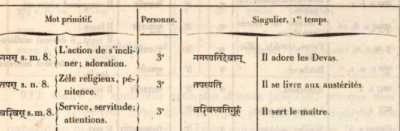 Mot primitif. Personne. Singulier, 1er temps.
नमस् s. m. 8. L'action de s'incli-
ner; adoration. 3e नमस्यतिदेवान् Il adore les Devas.
तपस् s. n. 8. Zéle religieux, pé-
nitence. 3e तपस्यति Il se livre aux austérités.
s. m. 8. Service, servitude;
attentions. 3e Il sert le maître.